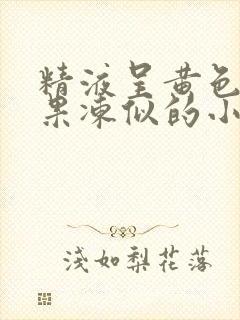 精液呈黄色
果凍似的小
淺如梨花落